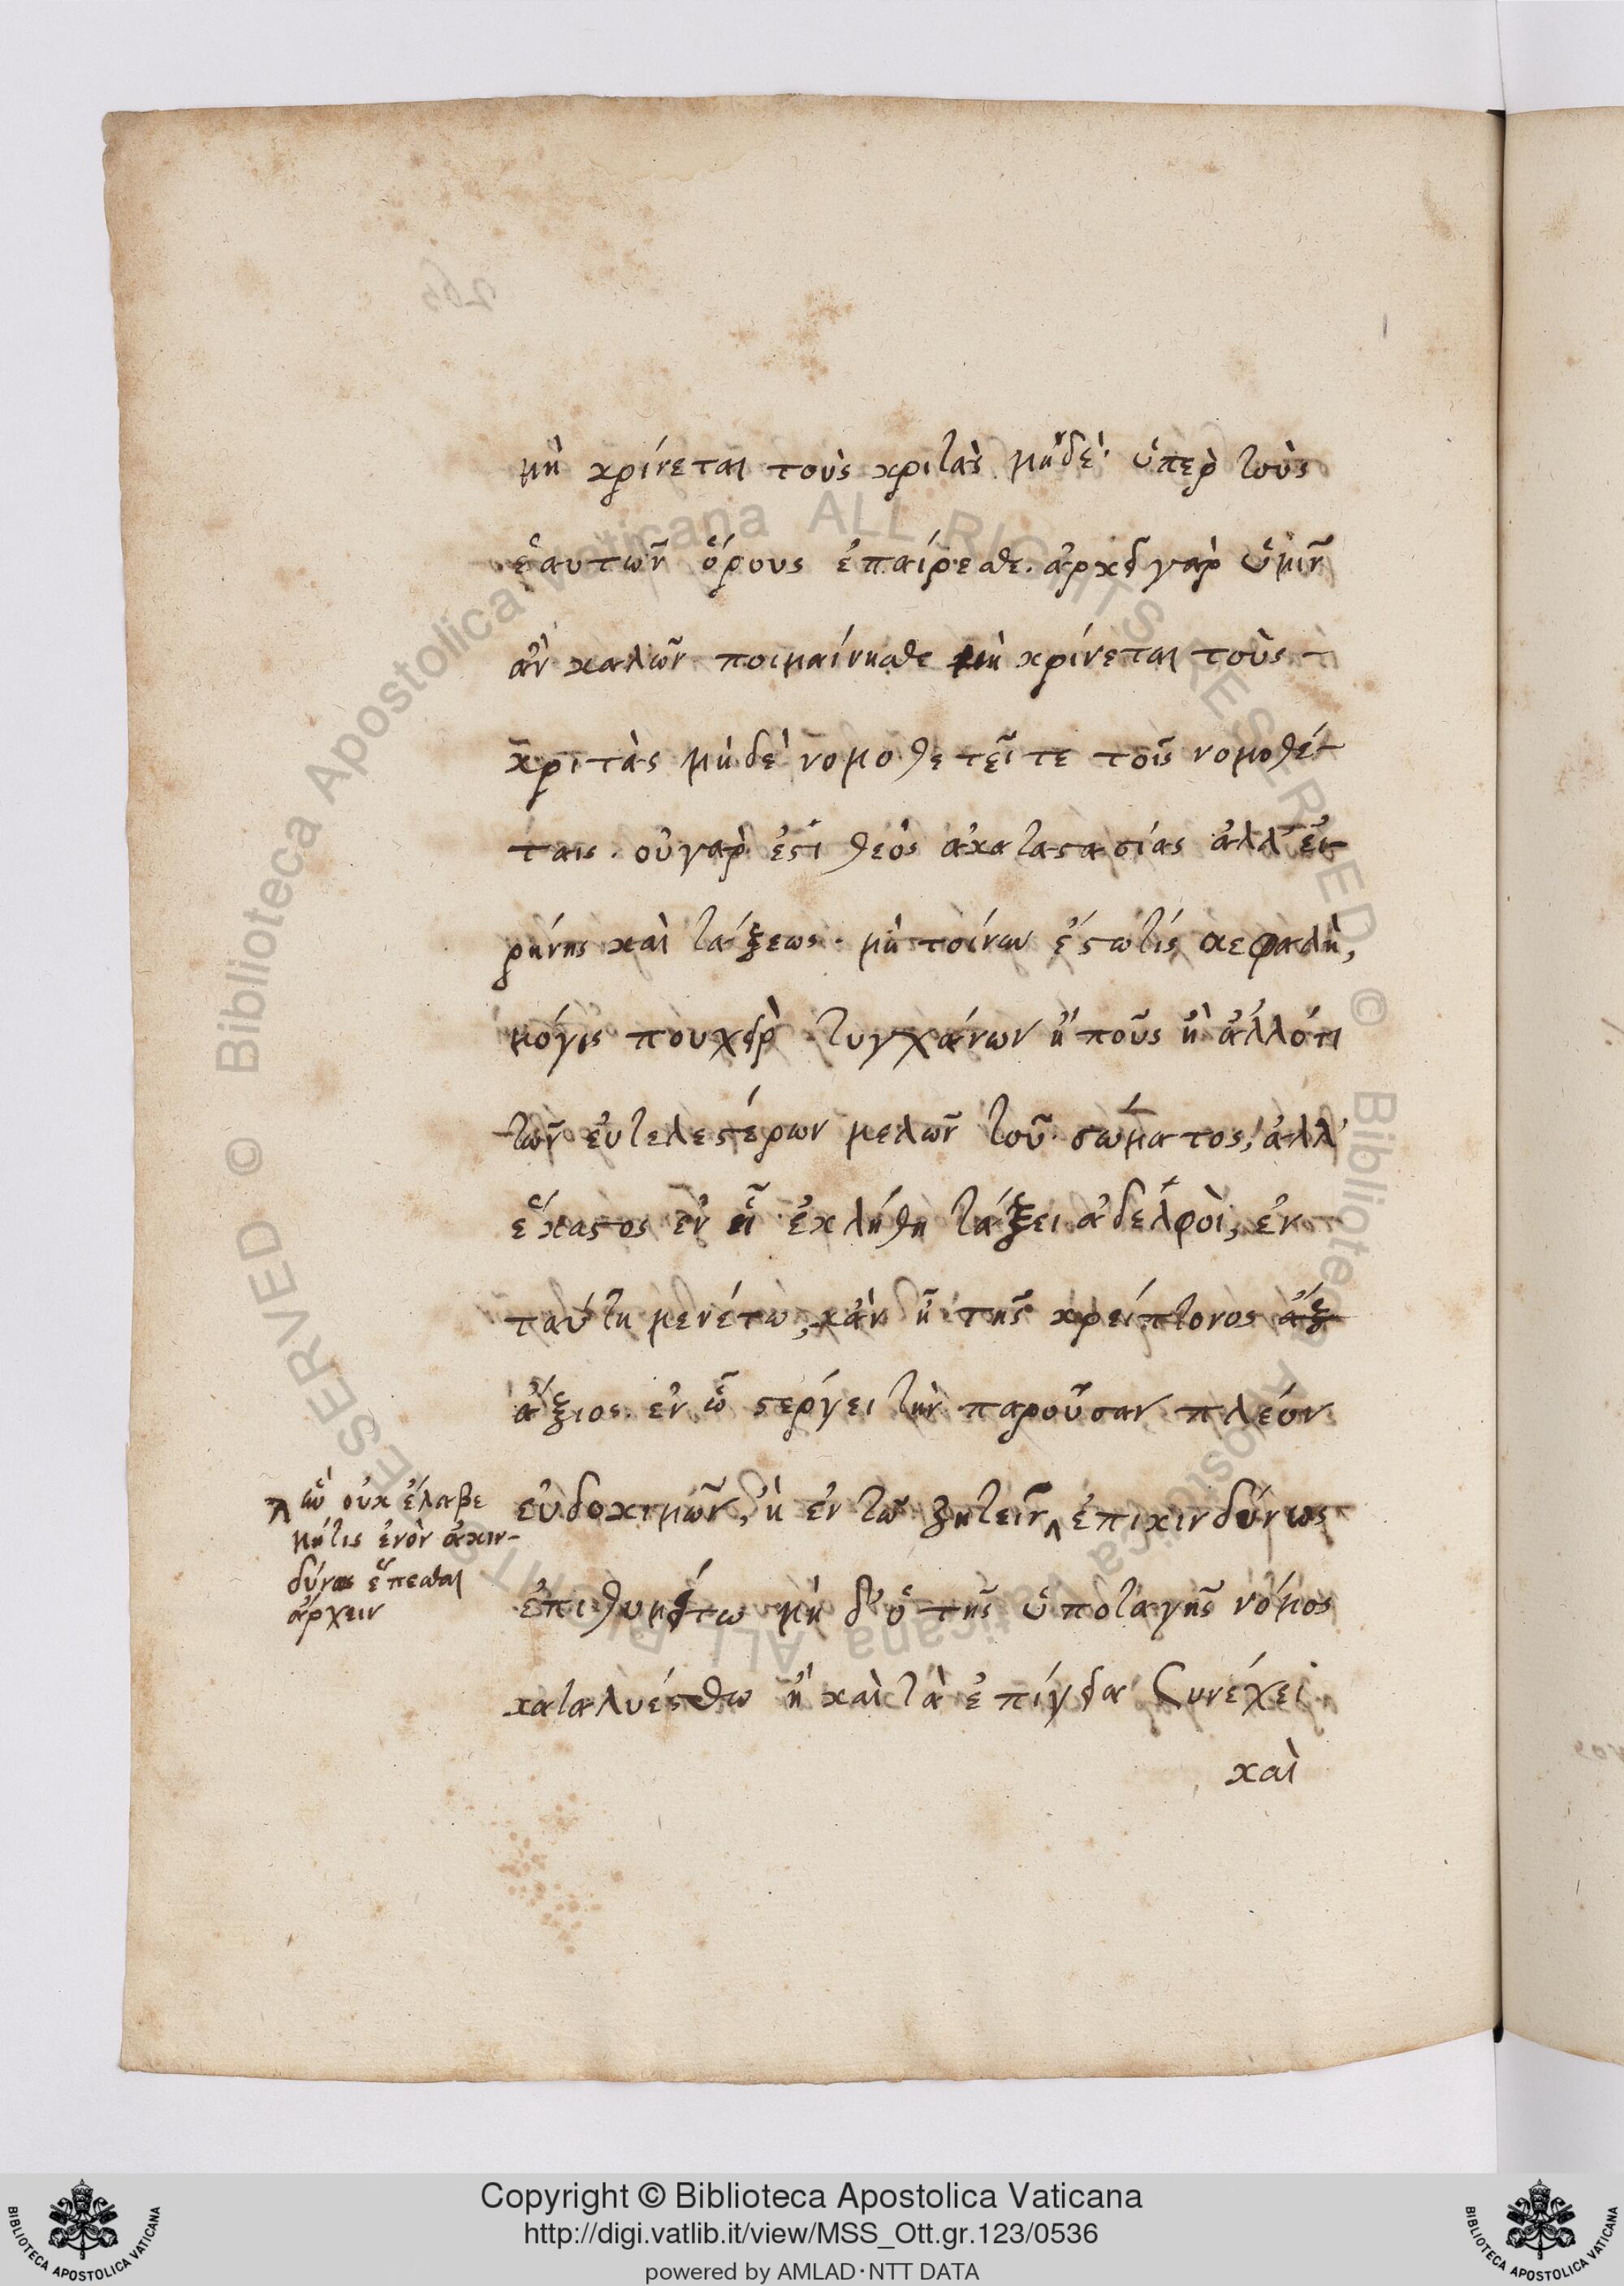 μὴ κρίνεται τοὺς κριτὰς μηδὲ ὑπὲρ τοὺς
ἑαυτῶν ὅρους ἐπαίρεσθε. ἀρκεῖ γὰρ ὑμῖν
ἂν καλῶν ποιμαίνησθε μὴ κρίνεται τοὺς
κριτὰς μὴδὲ νομοθετεῖτε τοῖς νομοθέ-
ταις. οὐ γὰρ ἐστὶ θεὸς ἀκαταστασίας ἀλλ' εἰ-
ρήνης καὶ τάξεως. μὴ τοίνυν ἔστω τίς κεφαλὴ,
μόγις που χεὶρ τυγχάνων ἢ ποῦς ἢ ἄλλότι
τῶν εὐτελεστέρων μελῶν τοῦ σώματος, ἀλλ'
ἕκαστος ἐν ᾗ ἐκλήθη τάξει ἀδελφοὶ, ἐν
ταύτῃ μενέτω, κἂν ᾖ τῆς κρείττονος ἄξ
ἄξιος. ἐν ᾧ στέργει τὴν παροῦσαν πλέον
εὐδοκιμῶν, ἢ ἐν τῶ ζητεῖν ἐπικινδύνως
ἣν οὐκ ἔλαβε
μήτις ἐνὸν ἀκιν-
δύνως ἕπεσθαι
ἄρχειν
ἐπιθυμείτω μὴ δ' ὁ τῆς ὑποταγῆς νόμος
καταλυέσθω ἢ καὶ τὰ ἐπίγεια συνέχει
καὶ
Copyright © Biblioteca Apostolica Vaticana
http://digi.vatlib.it/view/MSS_Ott.gr.123/0536
powered by AMLAD·NTT DATA